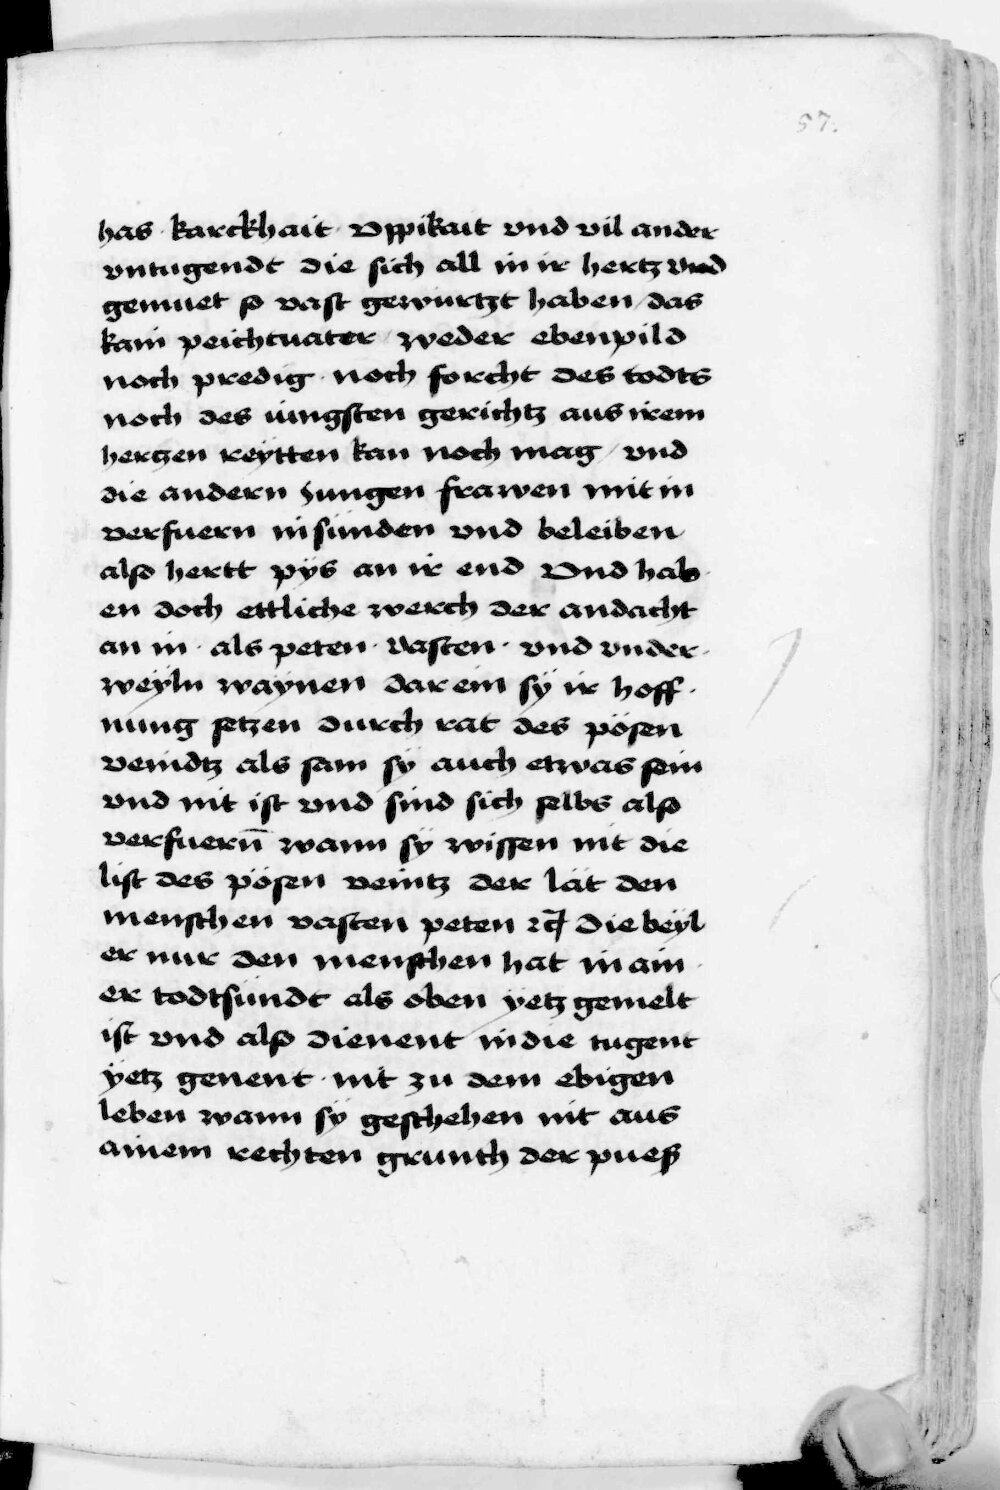 57.
has · karckhait · Vppikait vnd vil ander
vntugendt die sich all in ir hertz vnd
gemuet so vast gewurtzt haben / das
kain peichtuater / weder ebenpild
noch predig · noch forcht des todts
noch des iüngsten gerichtz aus irem
hertzen reÿtten kan noch mag / vnd
die andern Jungen frawen mit in
verfuern in sünden vnd beleiben
also hertt pÿs an ir end Vnd hab
en doch ettliche werch der andacht
an in · als peten · Vasten · vnd vnder ·
weÿln waÿnen dar ein sÿ ir hoff ·
nung setzen durch rat des pösen
veindtz als sam sÿ auch etwas sein
vnd nit ist vnd sind sich selbs also
verfuern̄ wann sÿ wissen nit die
list des pösen veintz der lät den
menschen vasten peten ꝛc̄ die beÿl
er nur den menschen hat in ain ·
er todtsündt als oben ÿetz gemelt
ist vnd also dienent in die tugent
ÿetz genent · nit zu dem ebigen
leben wann sÿ geschehen nit aus
ainem rechten grunth der pueß